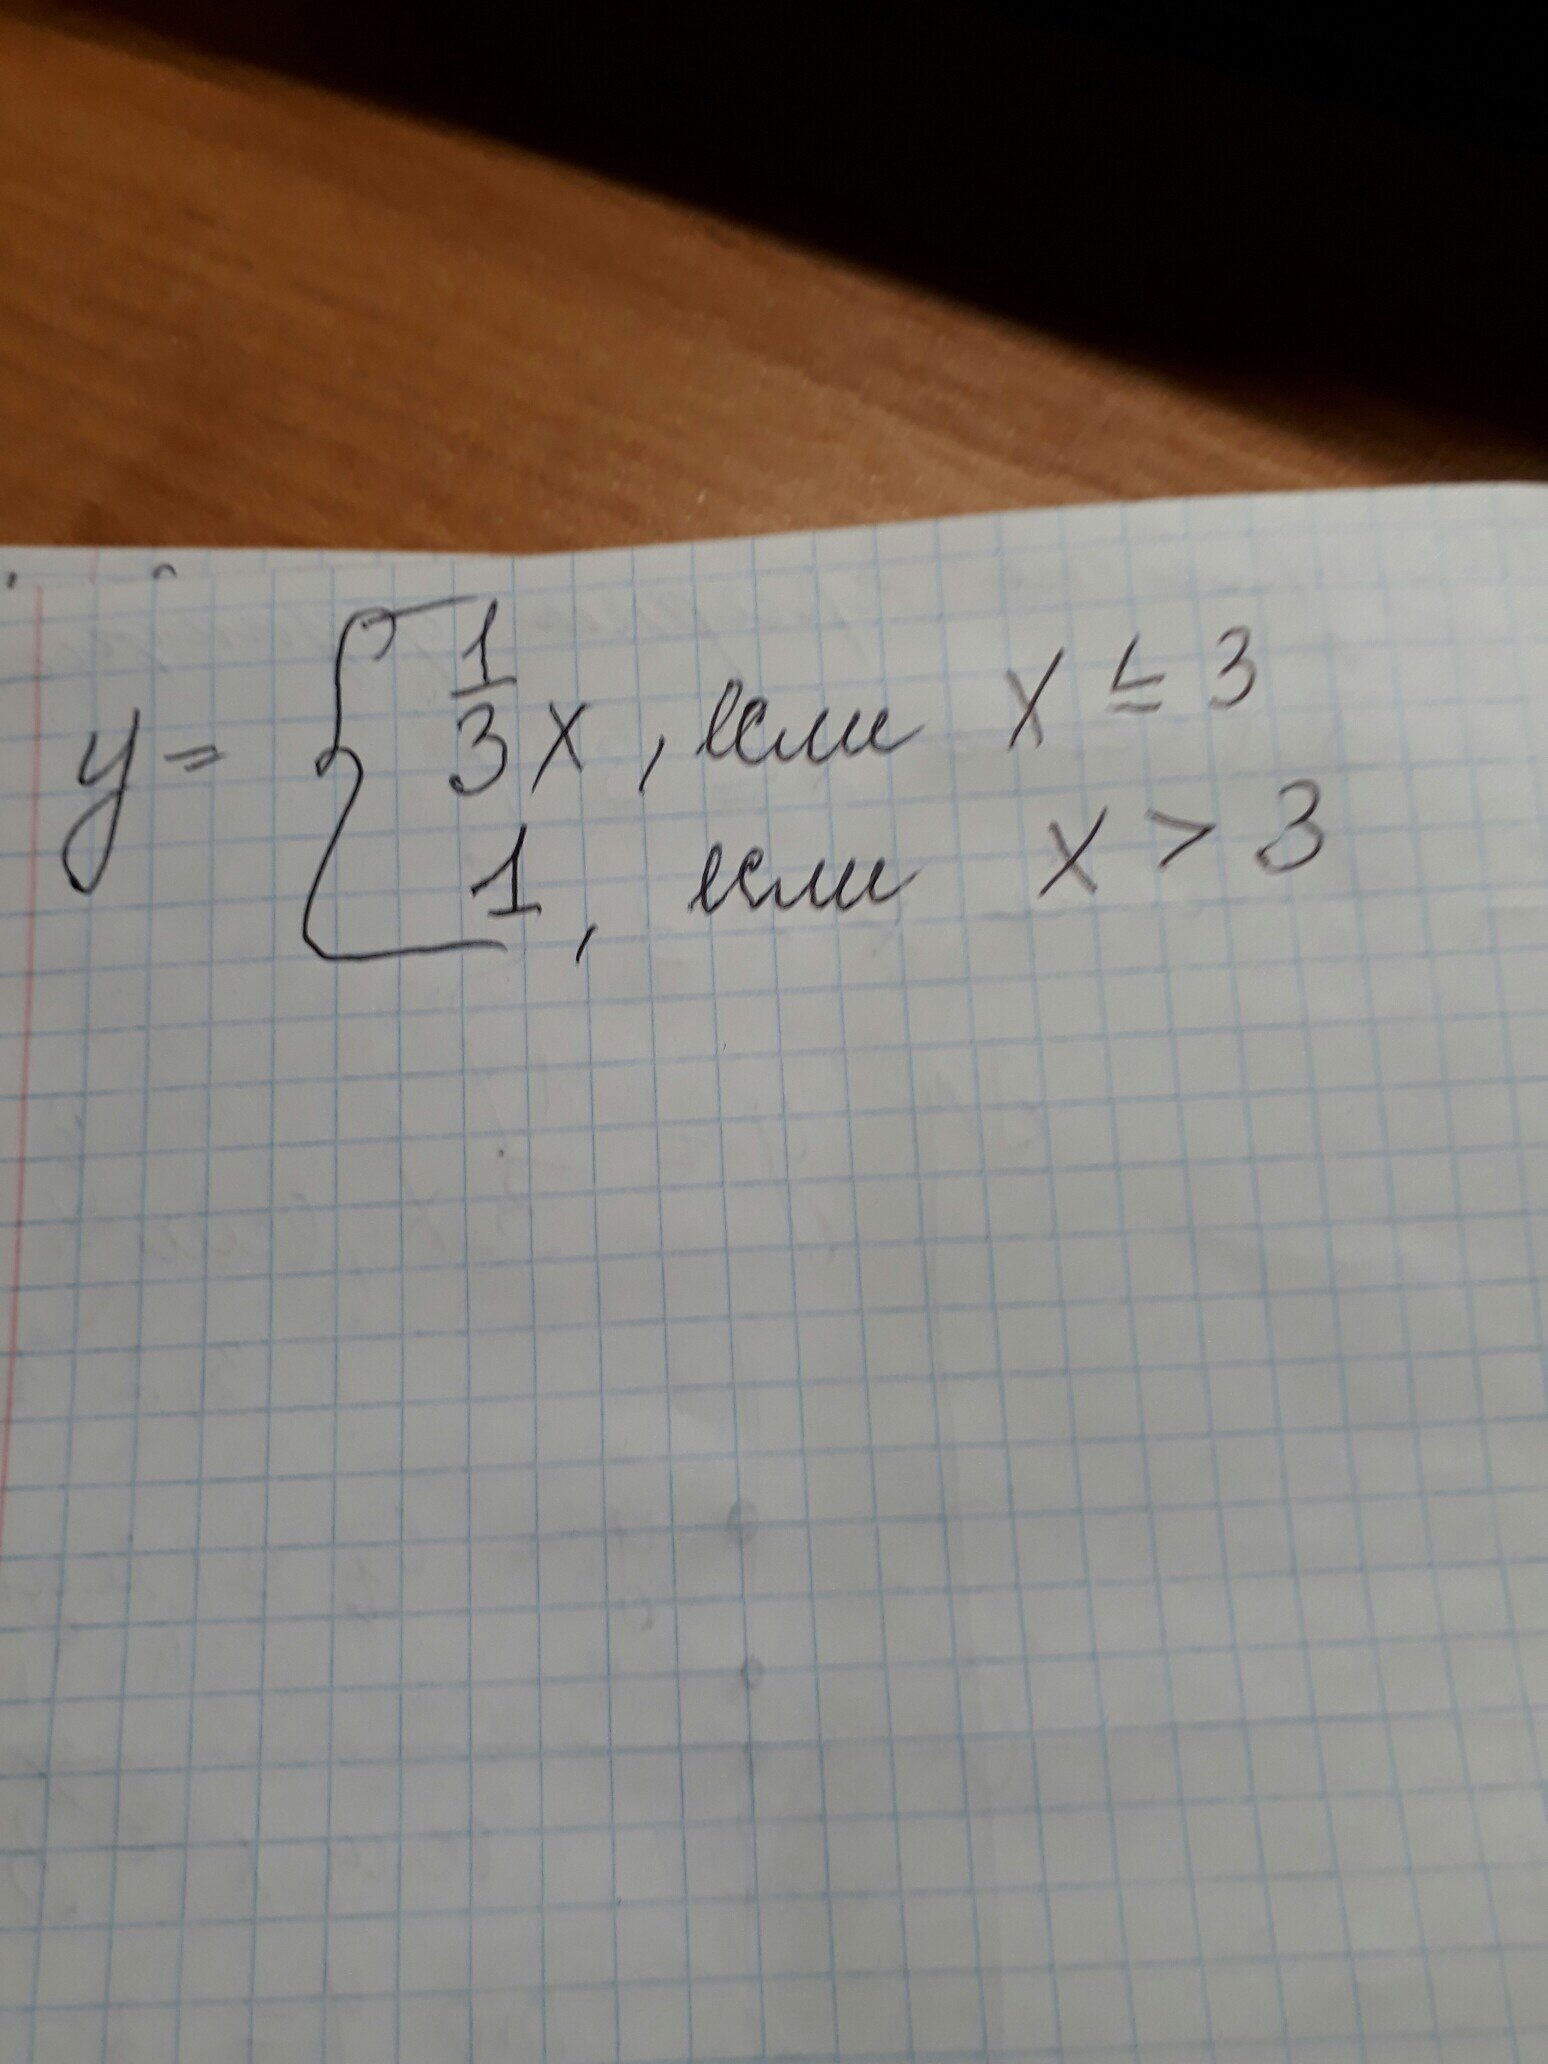 y = { 1/3 x, если x ≤ 3
1, если x > 3